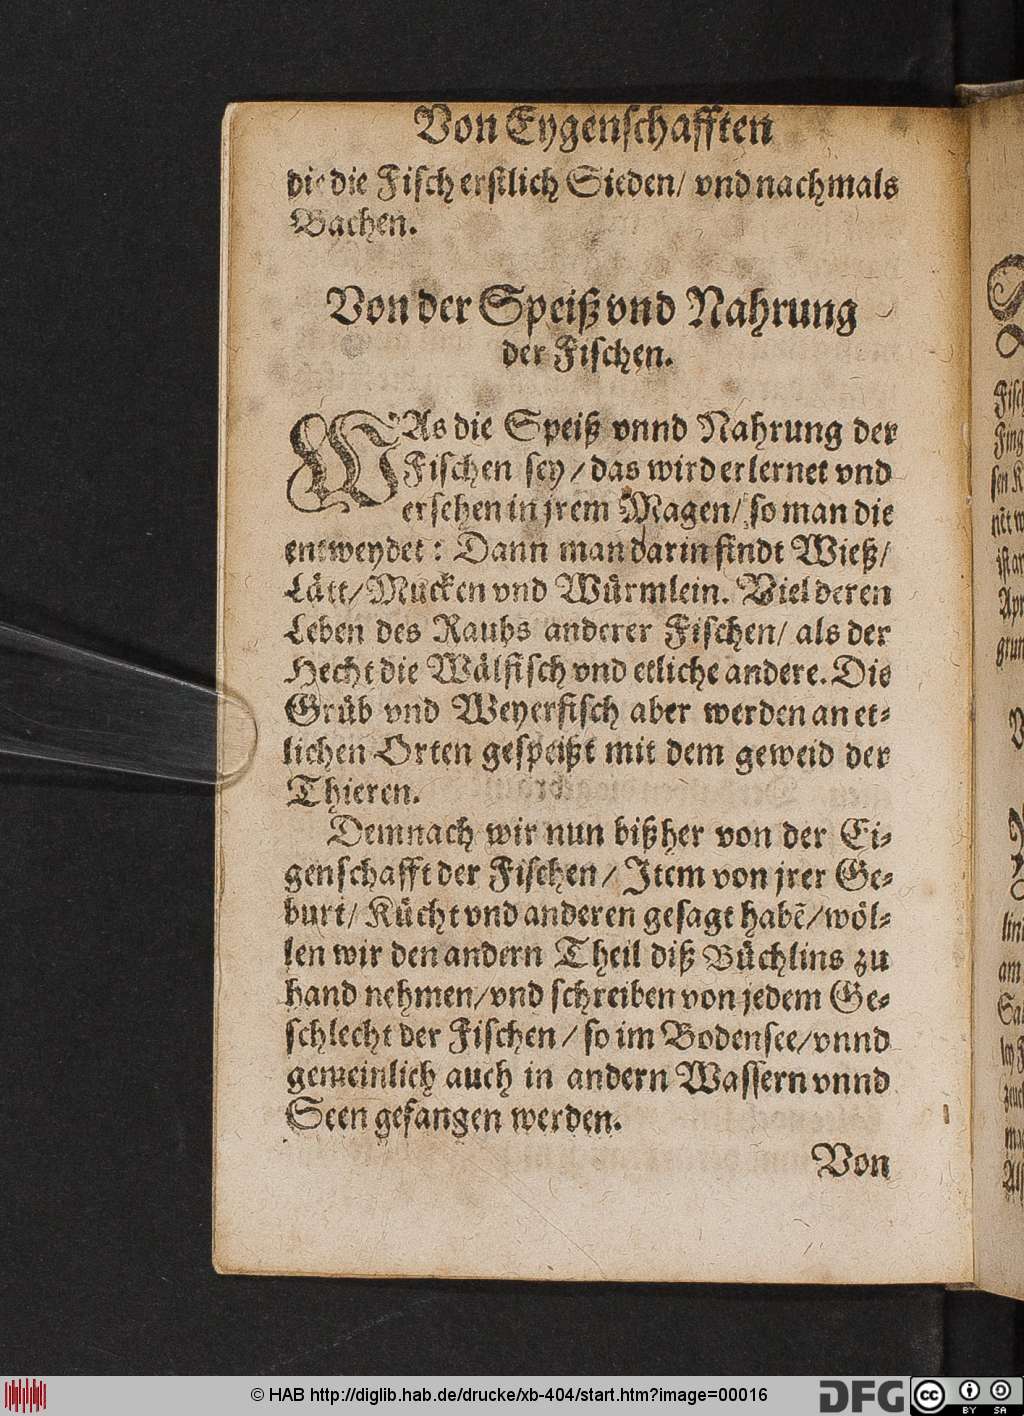 Von Eygenschafften
die die Fisch erstlich Sieden/ vnd nachmals
Bachen.
Von der Speiß vnd Nahrung
der Fischen.
WAs die Speiß vnnd Nahrung der
Fischen sey/ das wird erlernet vnd
ersehen in jrem Magen/ so man die
entweydet: Dann man darin findt Wieß/
Lätt/ Mucken vnd Würmlein. Viel deren
Leben des Raubs anderer Fischen/ als der
Hecht die Wälfisch vnd etliche andere. Die
Grüb vnd Weyerfisch aber werden an et-
lichen Orten gespeißt mit dem geweid der
Thieren.
Demnach wir nun bißher von der Ei-
genschafft der Fischen/ Item von jrer Ge-
burt/ Kücht vnd anderen gesagt habē/ wöl-
len wir den andern Theil diß Büchlins zu
hand nehmen/ vnd schreiben von jedem Ge-
schlecht der Fischen/ so im Bodensee/ vnnd
gemeinlich auch in andern Wassern vnnd
Seen gefangen werden.
Von
© HAB http://diglib.hab.de/drucke/xb-404/start.htm?image=00016
DFG
cc BY SA